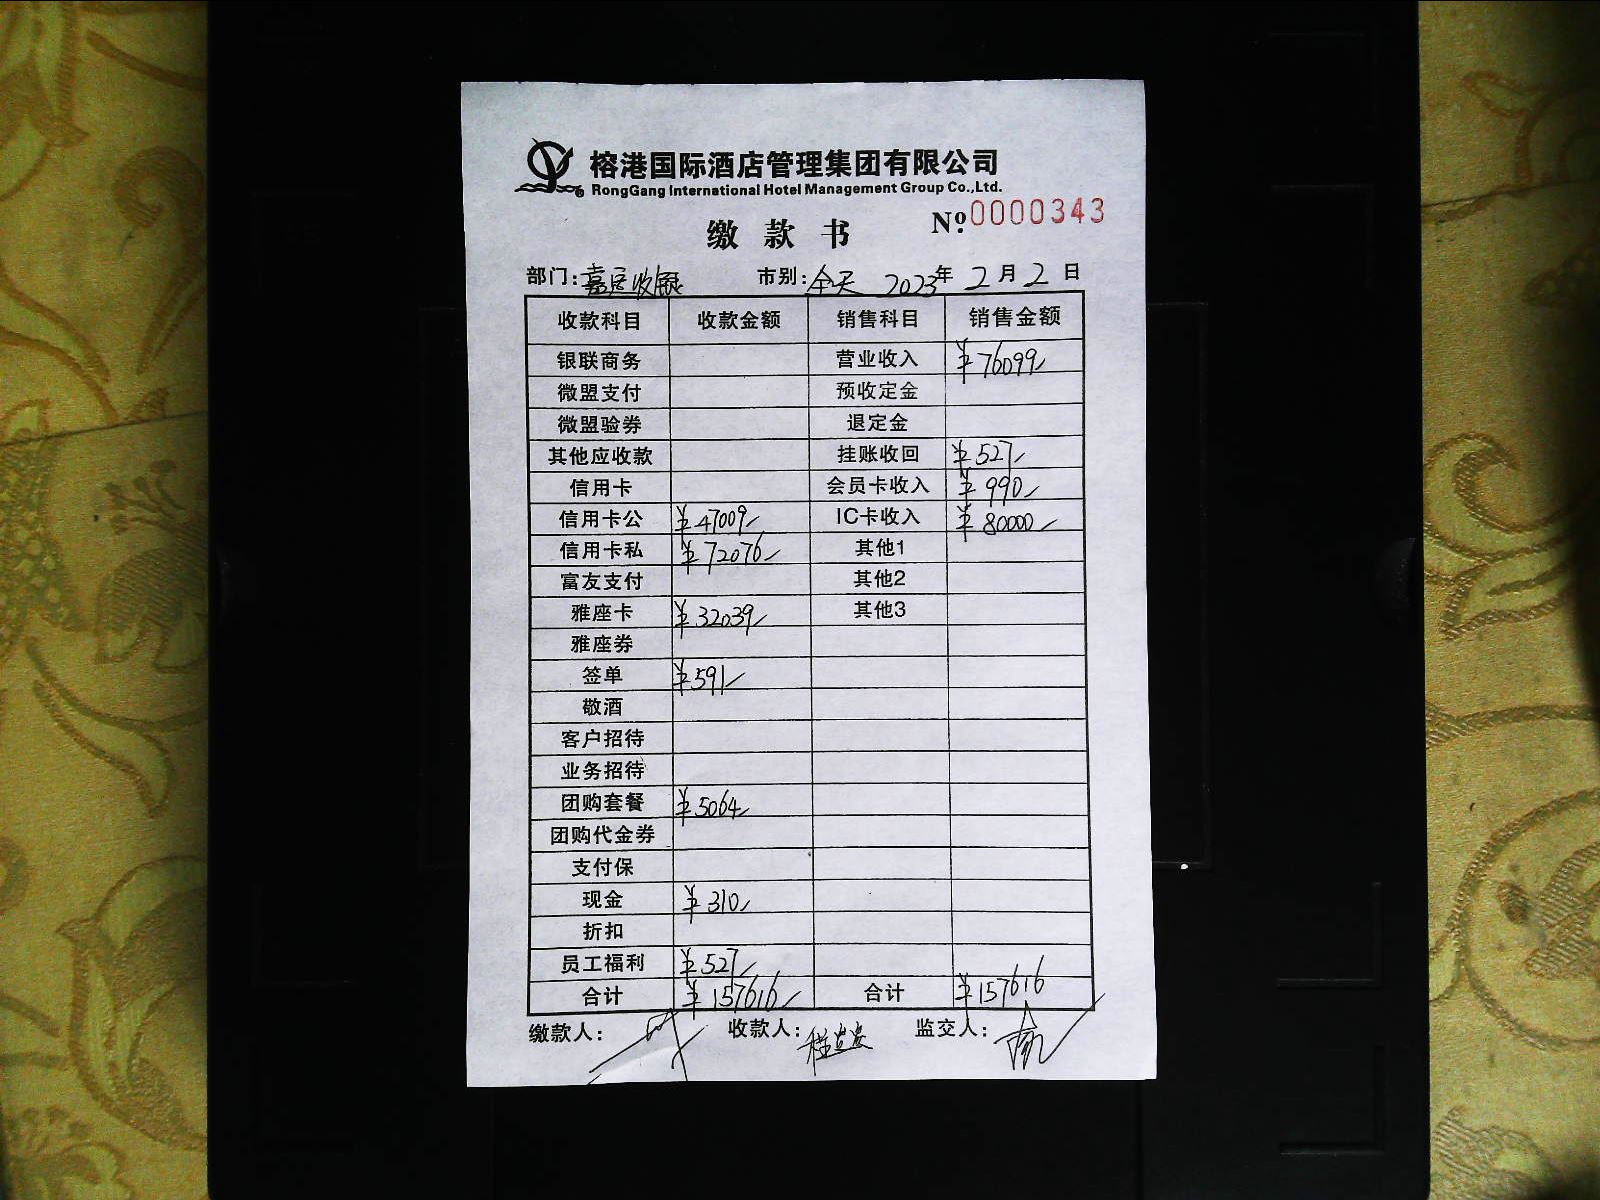 榕港国际酒店管理集团有限公司
RongGang International Hotel Management Group Co.,Ltd.
缴款书 №0000343
部门: 市别:全天 2023年2月2日
收款科目 收款金额 销售科目 销售金额
银联商务 营业收入 ¥76099
微盟支付 预收定金
微盟验券 退定金
其他应收款 挂账收回 ¥527
信用卡 会员卡收入 ¥990
信用卡公 ¥47009 IC卡收入 ¥80000
信用卡私 ¥72076 其他1
富友支付 其他2
雅座卡 ¥32039 其他3
雅座券
签单 ¥591
敬酒
客户招待
业务招待
团购套餐 ¥5064
团购代金券
支付保
现金 ¥310
折扣
员工福利 ¥527
合计 ¥157616 合计 ¥157616
缴款人: 收款人: 监交人: